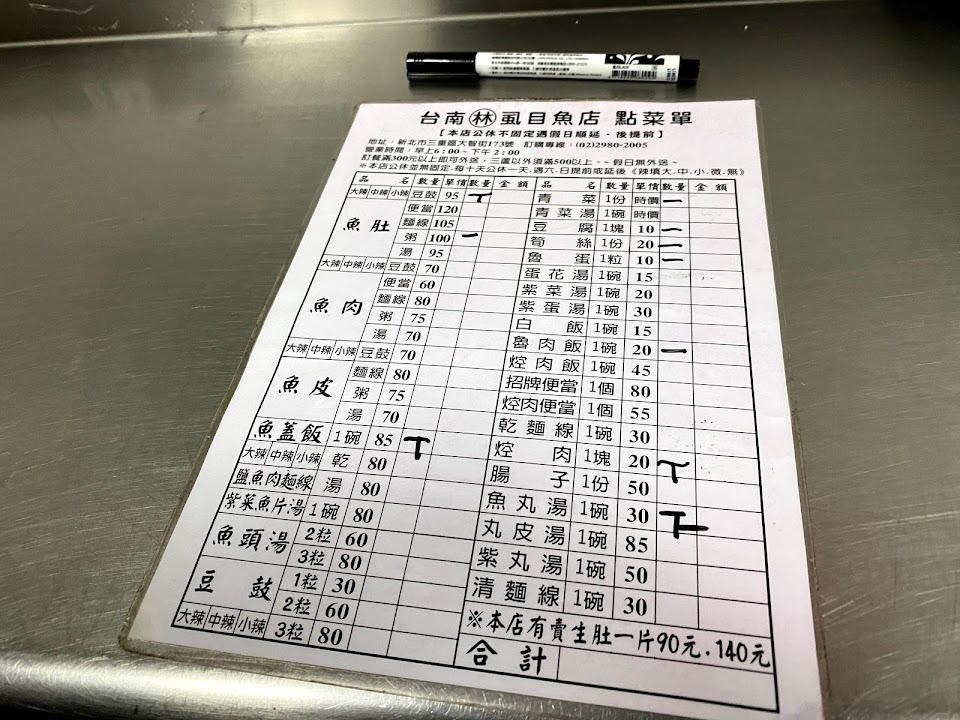 台南林虱目魚店 點菜單
【本店公休不固定遇假日順延、後提前】
地址：新北市三重區大智街173號 訂購專線：(02)2980-2005
營業時間：早上6：00～下午2：00
訂餐滿300元以上即可外送，三蘆以外須滿500以上。～假日無外送～
※本店公休並無固定，每十天公休一天，週六、日提前或延後《辣填大、中、小、微、無》
品 名 數量 單價 數量 金額
魚肚
大辣 中辣 小辣 豆鼓 95 丅
便當 120
麵線 105
粥 100 一
湯 95
魚肉
大辣 中辣 小辣 豆鼓 70
便當 60
麵線 80
粥 75
湯 70
魚皮
大辣 中辣 小辣 豆鼓 70
麵線 80
粥 75
湯 70
魚蓋飯 1碗 85 丅
大辣 中辣 小辣 乾 80
鹽魚肉麵線 湯 80
紫菜魚片湯 1碗 80
魚頭湯 2粒 60
3粒 80
豆鼓 1粒 30
2粒 60
大辣 中辣 小辣 3粒 80
品 名 數量 單價 數量 金額
青菜 1份 時價 一
青菜湯 1碗 時價
豆腐 1塊 10 一
筍絲 1份 20 一
魯蛋 1粒 10 一
蛋花湯 1碗 15
紫菜湯 1碗 20
紫蛋湯 1碗 30
白飯 1碗 15
魯肉飯 1碗 20 一
焢肉飯 1碗 45
招牌便當 1個 80
焢肉便當 1個 55
乾麵線 1碗 30
焢肉 1塊 20 丅
腸子 1份 50
魚丸湯 1碗 30 下
丸皮湯 1碗 85
紫丸湯 1碗 50
清麵線 1碗 30
※本店有賣生肚一片90元.140元
合計